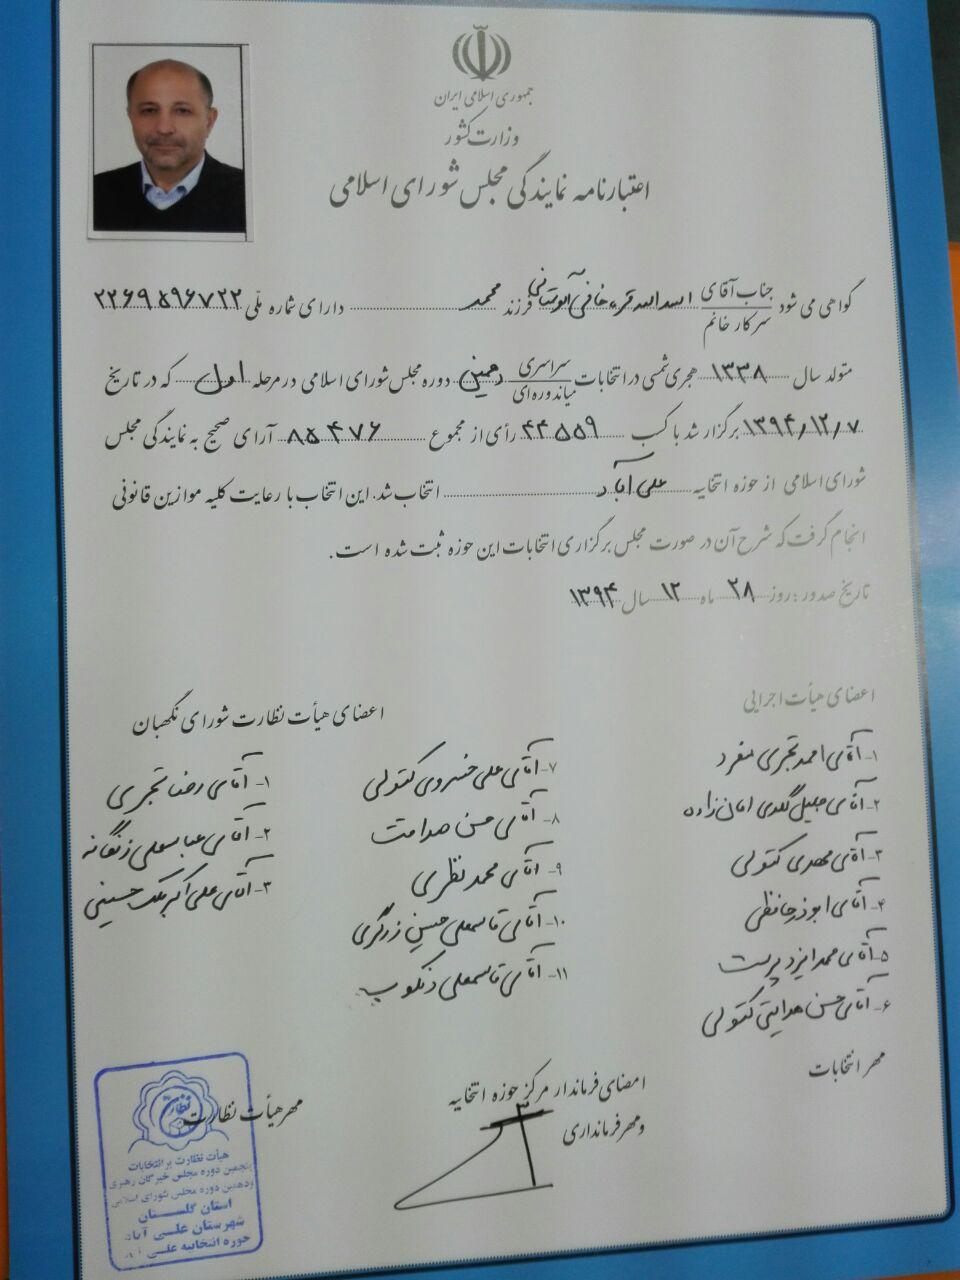 جمهوری اسلامی ایران
وزارت کشور
اعتبارنامه نمایندگی مجلس شورای اسلامی
گواهی می شود جناب آقای / سرکار خانم اسدالله قره خانی آلوستانی فرزند محمد دارای شماره ملّی ۲۲۶۹۵۹۶۷۲۲
متولد سال ۱۳۳۸ هجری شمسی در انتخابات سراسری / میاندوره‌ای دهمین دوره مجلس شورای اسلامی در مرحله اول که در تاریخ
۱۳۹۴/۱۲/۷ برگزار شد با کسب ۴۴۵۵۹ رأی از مجموع ۸۵۴۷۶ آرای صحیح به نمایندگی مجلس
شورای اسلامی از حوزه انتخابیه علی آباد انتخاب شد. این انتخاب با رعایت کلیه موازین قانونی
انجام گرفت که شرح آن در صورت مجلس برگزاری انتخابات این حوزه ثبت شده است.
تاریخ صدور: روز ۲۸ ماه ۱۲ سال ۱۳۹۴
اعضای هیأت اجرایی
۱- آقای احمد تجری منفرد
۲- آقای جلیل گلدی امان زاده
۳- آقای مهدی کتولی
۴- آقای ابوذر حافظی
۵- آقای محمد ایزد پرست
۶- آقای حسن هدایتی کتولی
۷- آقای علی خسروی کتولی
۸- آقای حسن هدامت
۹- آقای محمد نظری
۱۰- آقای قاسمعلی حسین زرگری
۱۱- آقای قاسمعلی دنکوب
اعضای هیأت نظارت شورای نگهبان
۱- آقای رضا تجری
۲- آقای عباسعلی زنگانه
۳- آقای علی اکبر ملک حسینی
مهر انتخابات
امضای فرماندار مرکز حوزه انتخابیه
و مهر فرمانداری
مهر هیأت نظارت
نظارت
هیأت نظارت بر انتخابات
پنجمین دوره مجلس خبرگان رهبری
و دهمین دوره مجلس شورای اسلامی
استان گلستان
شهرستان علی آباد
حوزه انتخابیه علی آباد